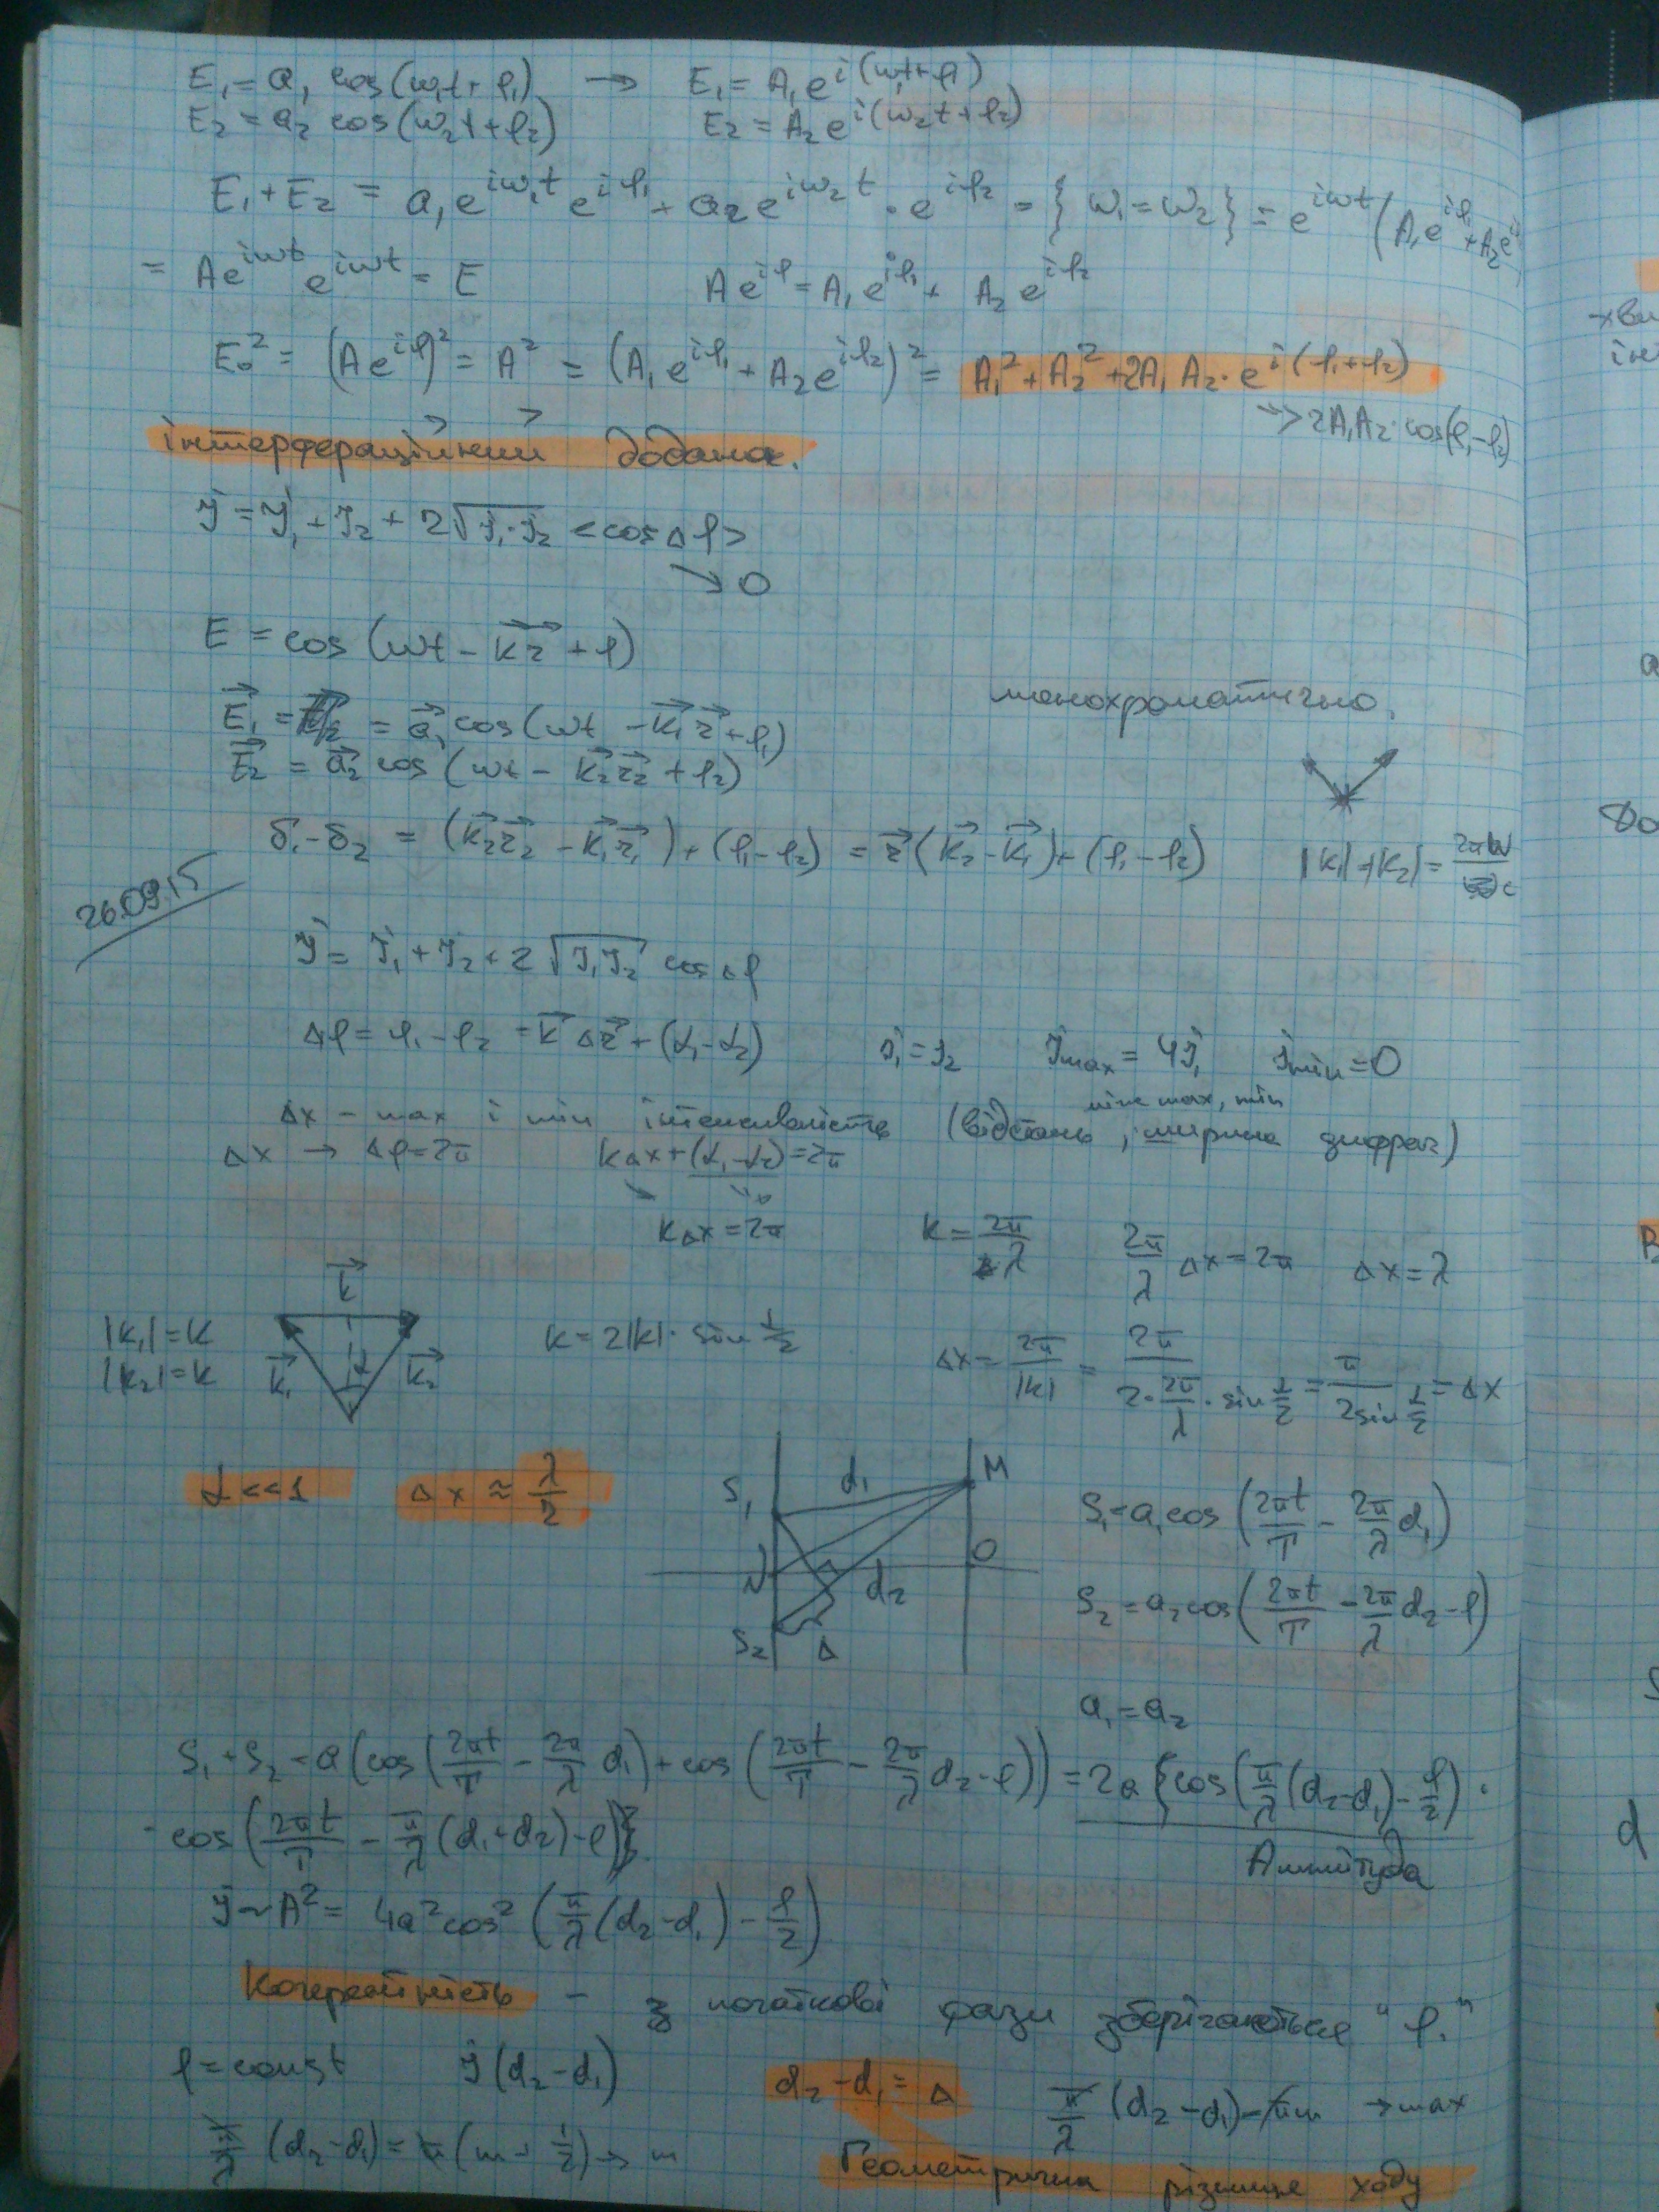 E₁ = a₁ cos(ω₁t + φ₁) → E₁ = A₁e^{i(ω₁t + φ₁)}
E₂ = a₂ cos(ω₂t + φ₂) E₂ = A₂e^{i(ω₂t + φ₂)}
E₁ + E₂ = a₁e^{iω₁t} e^{iφ₁} + a₂e^{iω₂t} · e^{iφ₂} = {ω₁ = ω₂} = e^{iωt}(A₁e^{iφ₁} + A₂e^{iφ₂}
= Ae^{iωt} e^{iωt} = E Ae^{iφ} = A₁e^{iφ₁} + A₂e^{iφ₂}
E₀² = (Ae^{iφ})² = A² = (A₁e^{iφ₁} + A₂e^{iφ₂})² = A₁² + A₂² + 2A₁A₂ · e^{i(-φ₁+φ₂)}
→ 2A₁A₂ cos(φ₁-φ₂)
інтерференційний доданок.
J = J₁ + J₂ + 2√(J₁·J₂) <cos Δφ>
→ 0
E = cos(ωt - k⃗r⃗ + φ) монохроматичною.
E⃗₁ = a⃗₁ cos(ωt - k⃗₁r⃗ + φ₁)
E⃗₂ = a⃗₂ cos(ωt - k⃗₂r⃗₂ + φ₂)
δ₁ - δ₂ = (k⃗₂r⃗₂ - k⃗₁r⃗₁) + (φ₁ - φ₂) = r⃗(k⃗₂ - k⃗₁) + (φ₁ - φ₂) |k₁| + |k₂| = 2πω/c
26.09.15
J = J₁ + J₂ + 2√(J₁J₂) cos Δφ J₁ = J₂ Jmax = 4J₁ Jmin = 0
Δφ = φ₁ - φ₂ = k⃗Δr⃗ + (α₁ - α₂)
між max, min
Δx - max і min інтенсивність (відстань, ширина дифрак)
Δx → Δφ = 2π kΔx + (α₁ - α₂) = 2π
kΔx = 2π k = 2π/λ 2π/λ Δx = 2π Δx = λ
|k₁| = k
|k₂| = k
k⃗ k⃗₁ k⃗₂ α
k = 2|k| · sin α/2 Δx = 2π/|k| = 2π/(2·2π/λ · sin α/2) = λ/(2sin α/2) = Δx
α << 1 Δx ≈ λ/α
S₁ d₁ M
N d₂ O
S₂ Δ
S₁ = a₁cos(2πt/T - 2π/λ d₁)
S₂ = a₂cos(2πt/T - 2π/λ d₂ - φ)
a₁ = a₂
S₁ + S₂ = a(cos(2πt/T - 2π/λ d₁) + cos(2πt/T - 2π/λ d₂ - φ)) = 2a{cos(π/λ(d₂-d₁) - φ/2) ·
· cos(2πt/T - π/λ(d₁+d₂) - φ)}. Амплітуда
J ~ A² = 4a²cos²(π/λ(d₂-d₁) - φ/2)
Когерентність - з початкові фази зберігається "φ."
φ = const J(d₂-d₁) d₂ - d₁ = Δ π/λ(d₂-d₁) = πm → max
π/λ(d₂-d₁) = π(m - 1/2) → m Геометрична різниця ходу